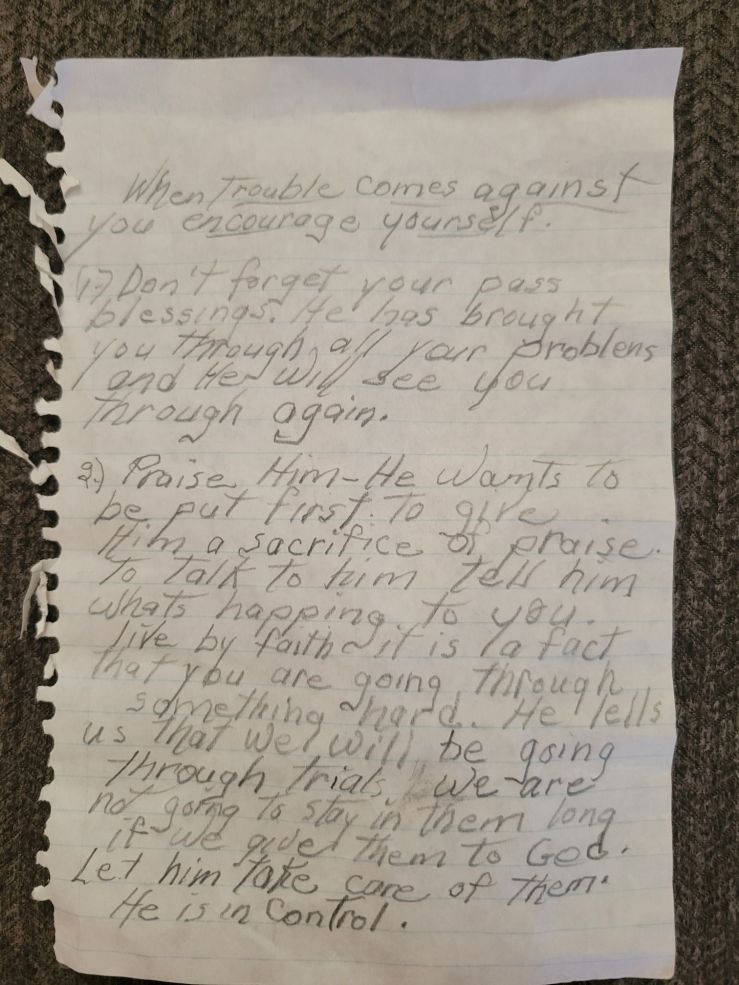 When Trouble comes against
you encourage yourself.
1.) Don't forget your pass
blessings. He has brought
you through all your problems
and He will see you
through again.
2.) Praise Him - He wants to
be put first. To give
Him a sacrifice of praise.
To talk to him tell him
whats happing to you.
live by faith - it is a fact
that you are going through
something hard. He tells
us that we will be going
through trials, we are
not going to stay in them long
if we give them to God.
Let him take care of them.
He is in Control.